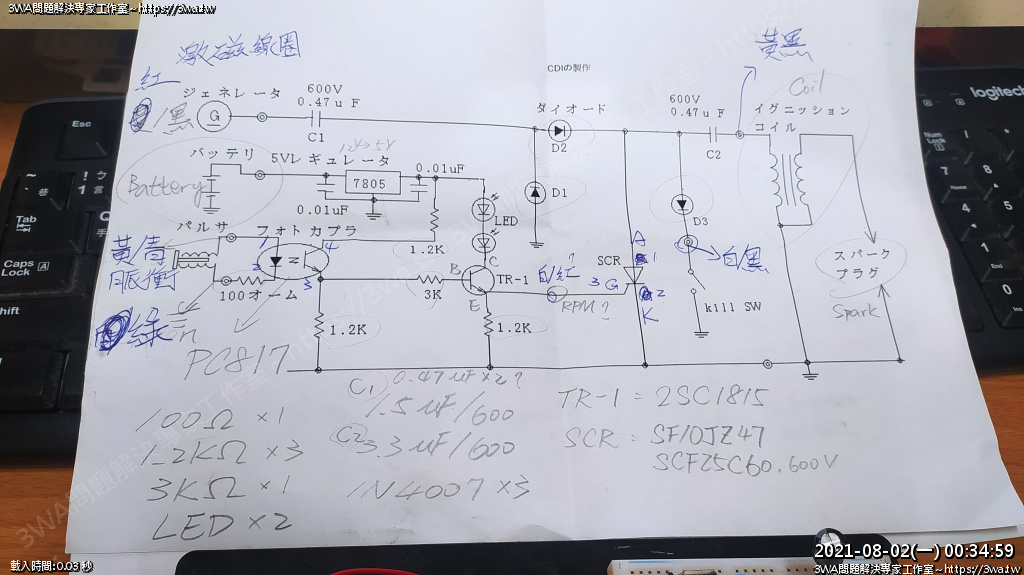 3WA問題解決專家工作室~https://3wa.tw
激磁線圈
黃黑
CDIの製作
Coil
紅
/黑
ジェネレータ
G
600V
0.47uF
C1
ダイオード
D2
600V
0.47uF
C2
イグニッション
コイル
バッテリ
Battery
5Vレギュレータ
12V→5V
7805
0.01uF
0.01uF
LED
D1
D3
パルサ
フォトカプラ
黃青
脈衝
1
4
2
3
1.2K
100オーム
3K
B
C
E
TR-1
白/紅?
RPM?
SCR
A
1
3G
2
K
白黑
kill SW
スパーク
プラグ
Spark
綠
in
PC817
1.2K
1.2K
C1 0.47uF×2?
1.5uF/600
C2 3.3uF/600
1N4007×3
100Ω×1
1.2KΩ×3
3KΩ×1
LED×2
TR-1=2SC1815
SCR=SF10JZ47
SCF25C60.600V
logitech
Esc
Tab
Caps
Lock
A
hift
Num
Lock
7
Home
8
4
5
1
End
2
0
Ins
載入時間:0.03 秒
2021-08-02(一) 00:34:59
3WA問題解決專家工作室~https://3wa.tw